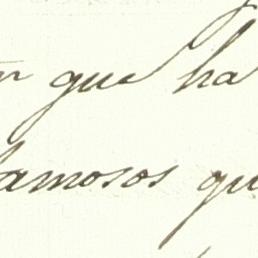 que ha
famosos qu